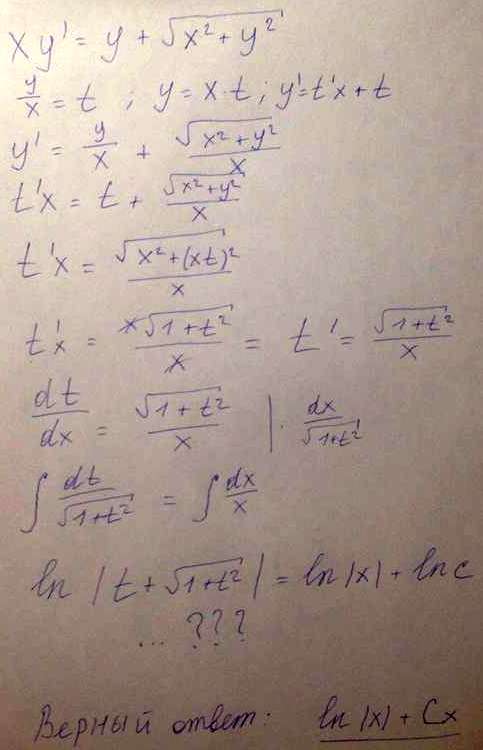 xy' = y + √(x² + y²)
y/x = t ; y = x·t ; y' = t'x + t
y' = y/x + √(x² + y²)/x
t'x = t + √(x² + y²)/x
t'x = √(x² + (xt)²)/x
t'x = x√(1 + t²)/x = t' = √(1 + t²)/x
dt/dx = √(1 + t²)/x | · dx/√(1+t²)
∫ dt/√(1+t²) = ∫ dx/x
ln |t + √(1+t²)| = ln|x| + ln c
... ???
Верный ответ: ln|x| + Cx